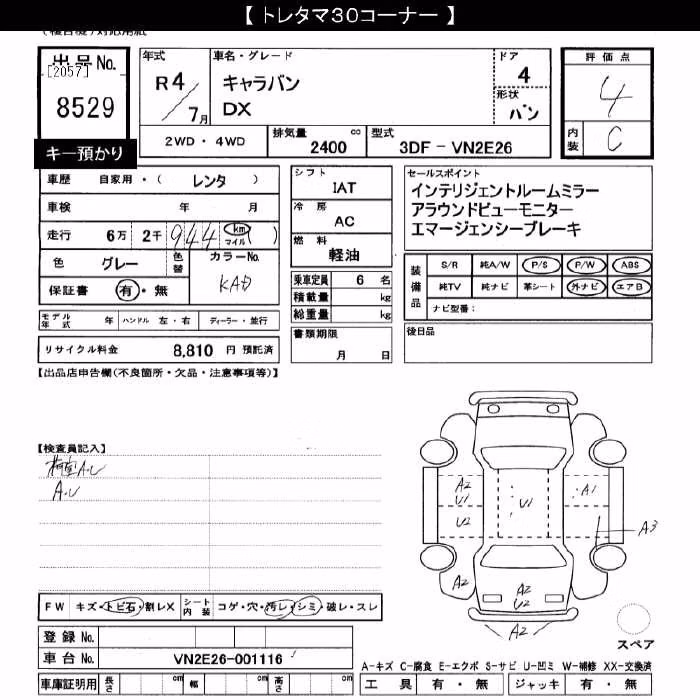 【 トレタマ30コーナー 】
出品No.
[2057]
8529
キー預かり
年式
R4/7月
車名・グレード
キャラバン
DX
ドア
4
形状
バン
評価点
4
内装
C
2WD・4WD
排気量 2400 cc
型式 3DF-VN2E26
車歴 自家用・( レンタ )
車検 年 月
走行 6万 2千 944 km マイル ( )
色 グレー
色替
カラーNo.
KAD
保証書 有・無
シフト
IAT
冷房
AC
燃料
軽油
乗車定員 6 名
積載量 kg
総重量 kg
セールスポイント
インテリジェントルームミラー
アラウンドビューモニター
エマージェンシーブレーキ
装備品
S/R 純A/W P/S P/W ABS
純TV 純ナビ 革シート 外ナビ エアB
ナビ型番:
モデル年式 年 ハンドル 左・右 ディーラー・並行
書類期限
月 日
後日品
リサイクル料金 8,810 円 預託済
【出品店申告欄(不良箇所・欠品・注意事項等)】
【検査員記入】
荷室A.U
A.U
A2
U1
U1
A1
U2
A3
A2
A2
U2
A2
FW キズ・トビ石・割レX シート内装 コゲ・穴・汚レ・シミ・破レ・スレ
登録No.
車台No. VN2E26-001116
スペア
車庫証明用 長さ cm 幅 cm 高さ cm
A-キズ C-腐食 E-エクボ S-サビ U-凹ミ W-補修 XX-交換済
工具 有・無 ジャッキ 有・無